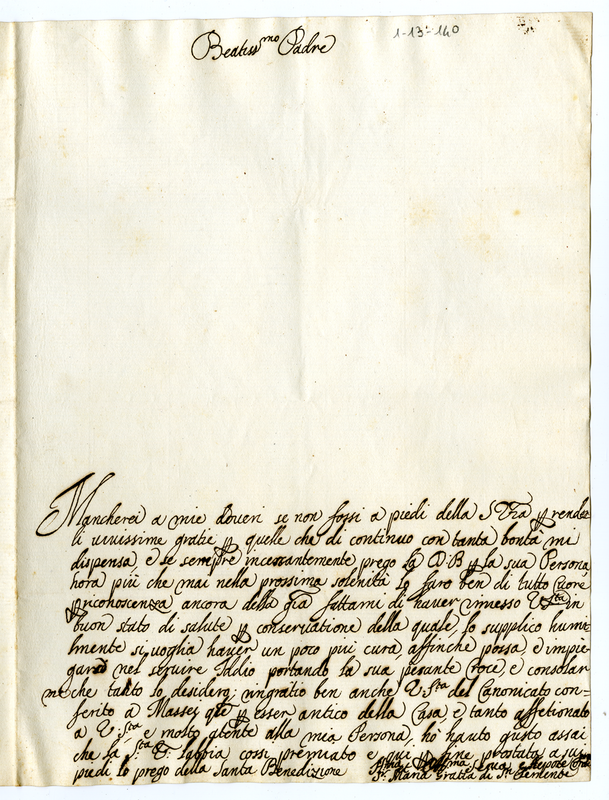 Beatiss.mo Padre
1-13-140
Mancherei a mie doveri se non fossi a piedi della S Vra p render
li vivissime gratie p quelle che di continuo con tanta bontà mi
dispensa, e se sempre incessantemente prego la D: B: p la sua Persona
hora più che mai nella prossima solenità lo farò ben di tutto Cuore
p riconoscenza ancora della gra fattami di haver messo V. Sta in
buon stato di salute p conservatione della quale, lo supplico humil
lmente si voglia haver un poco più cura, affinche possa, e impie
garsi nel servire Iddio portando la sua pesante Croce, e consolar
me che tanto lo desidero; ringratio ben anche V. Sta del Canonicato con-
ferito a Massei che p esser antico della Casa, e tanto affetionato
a V. Sta e molto attente alla mia Persona, ho hauto gusto assai
che la S.ta V. l'abbia cossi premiato e qui p fine prostrata a sui
piedi lo prego della Santa Benedizione
Sr. Maria Gratia di Sn Clemente